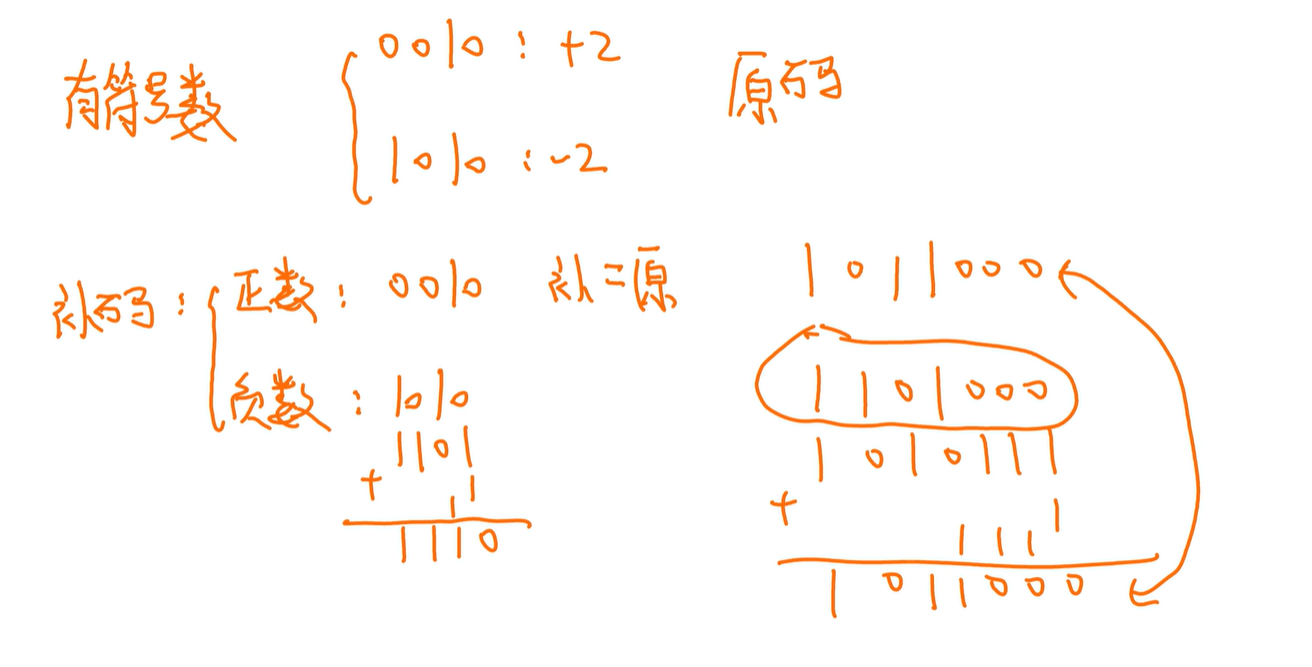 有符号数
0010：+2
1010：-2
原码
补码：
正数：0010 补=原
负数：1010
1101
+ 1
1
1110
1011000
1101000
1010111
+ 1
111
1011000